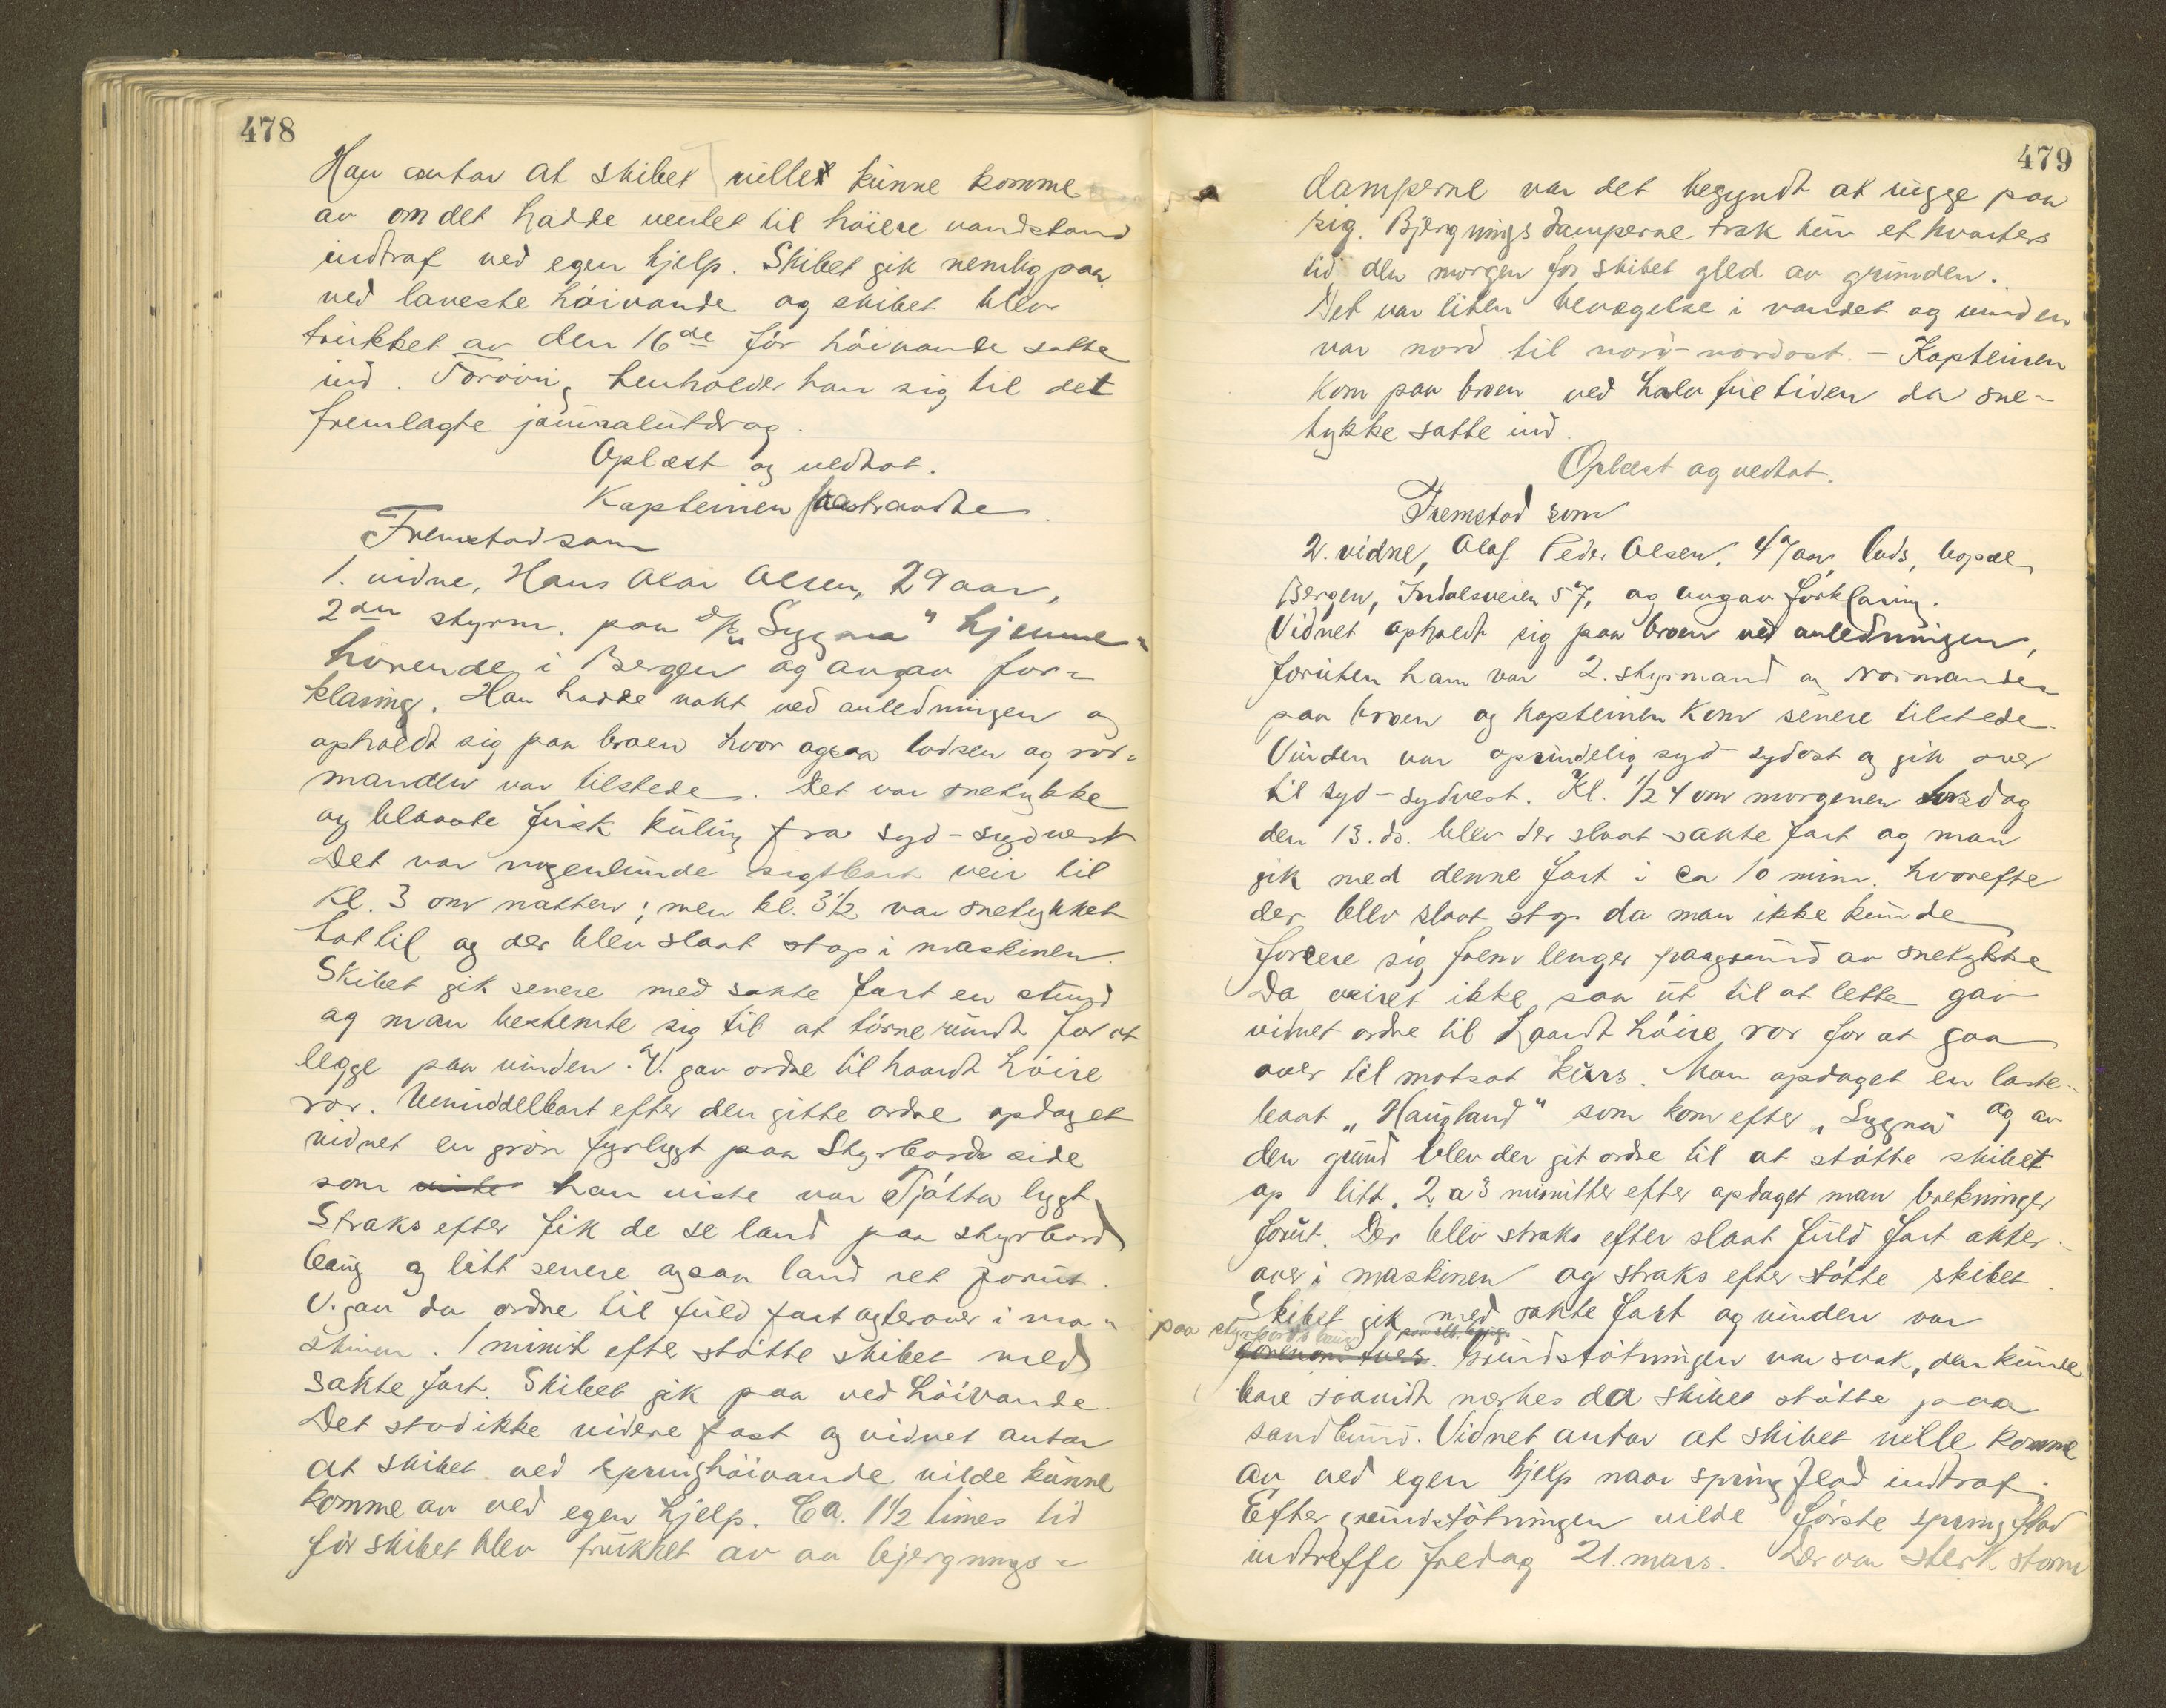 478
Han antar at skibet vilde kunne komme
av om det hadde ventet til höiere vandstand
indtraf ved egen hjelp. Skibet gik nemlig paa
ved laveste höivande og skibet blev
trukket av den 16de för höivande satte
ind. Forövrig henholder han sig til det
fremlagte journalutdrag.
Oplæst og vedtat.
Kapteinen fratraadte.
Fremstod som
1. vidne, Hans Olai Olsen, 29 aar,
2den styrm. paa d/s "Sygna" hjemme-
hörende i Bergen og avgav for-
klaring. Han hadde vakt ved anledningen og
opholdt sig paa broen hvor ogsaa lodsen og ror-
manden var tilstede. Det var snetykke
og blaaste frisk kuling fra syd-sydvest
Det var nogenlunde sigtbart veir til
Kl. 3 om natten; men kl. 3½ var snetykket
tat til og der blev slaat stop i maskinen.
Skibet gik senere med sakte fart en stund
og man bestemte sig til at törne rundt for at
legge paa vinden. V. gav ordre til haardt höire
ror. Umiddelbart efter den gitte ordre opdaget
vidnet en grön fyrlygt paa Styrbords side
som viste han viste var Tjötta lygt
Straks efter fik de se land paa styrbord
baug og litt senere ogsaa land ret forut.
V. gav da ordre til fuld fart agterover i ma-
skinen. 1 minut efter stötte skibet med
sakte fart. Skibet gik paa ved höivande.
Det stod ikke videre fast og vidnet antar
at skibet ved springhöivande vilde kunne
komme av ved egen hjelp. Ca. 1½ times tid
för skibet blev trukket av av bjergnings-
479
damperne var det begyndt at rugge paa
sig. Bjergningsdamperne trak kun et kvarters
tid den morgen för skibet gled av grunden.
Det var liten bevægelse i vandet og vinden
var nord til nord-nordost. - Kapteinen
kom paa broen ved halv fire tiden da sne-
tykke satte ind.
Oplæst og vedtat.
Fremstod som
2. vidne, Olaf Peder Olsen, 47 aar, lods, bopæl
Bergen, Indalsveien 57, og avgav forklaring.
Vidnet opholdt sig paa broen ved anledningen,
foruten ham var 2. styrmand og rormanden
paa broen og kapteinen kom senere tilstede.
Vinden var oprindelig syd-sydost og gik over
til syd-sydvest. Kl. ½4 om morgenen torsdag
den 13. ds. blev der slaat sakte fart og man
gik med denne fart i ca 10 min. hvorefter
der blev slaat stop da man ikke kunde
forcere sig frem lenger paagrund av snetykke
Da veiret ikke saa ut til at lette gav
vidnet ordre til haardt höire ror for at gaa
over til motsat kurs. Man opdaget en laste-
baat "Haugland" som kom efter "Sygna" og av
den grund blev der git ordre til at stötte skibet
op litt. 2 a 3 minutter efter opdaget man brekninger
forut. Der blev straks efter slaat fuld fart akter-
over i maskinen og straks efter stötte skibet.
Skibet gik med sakte fart og vinden var
paa styrbords baug paa stb. baug.
forenom tvers. Grundstötningen var svak, den kunde
bare saavidt merkes da skibet stötte paa
sandbund. Vidnet antar at skibet vilde komme
av ved egen hjelp naar springflod indtraf.
Efter grundstötningen vilde förste springflod
indtreffe fredag 21. mars. Der var sterk storm